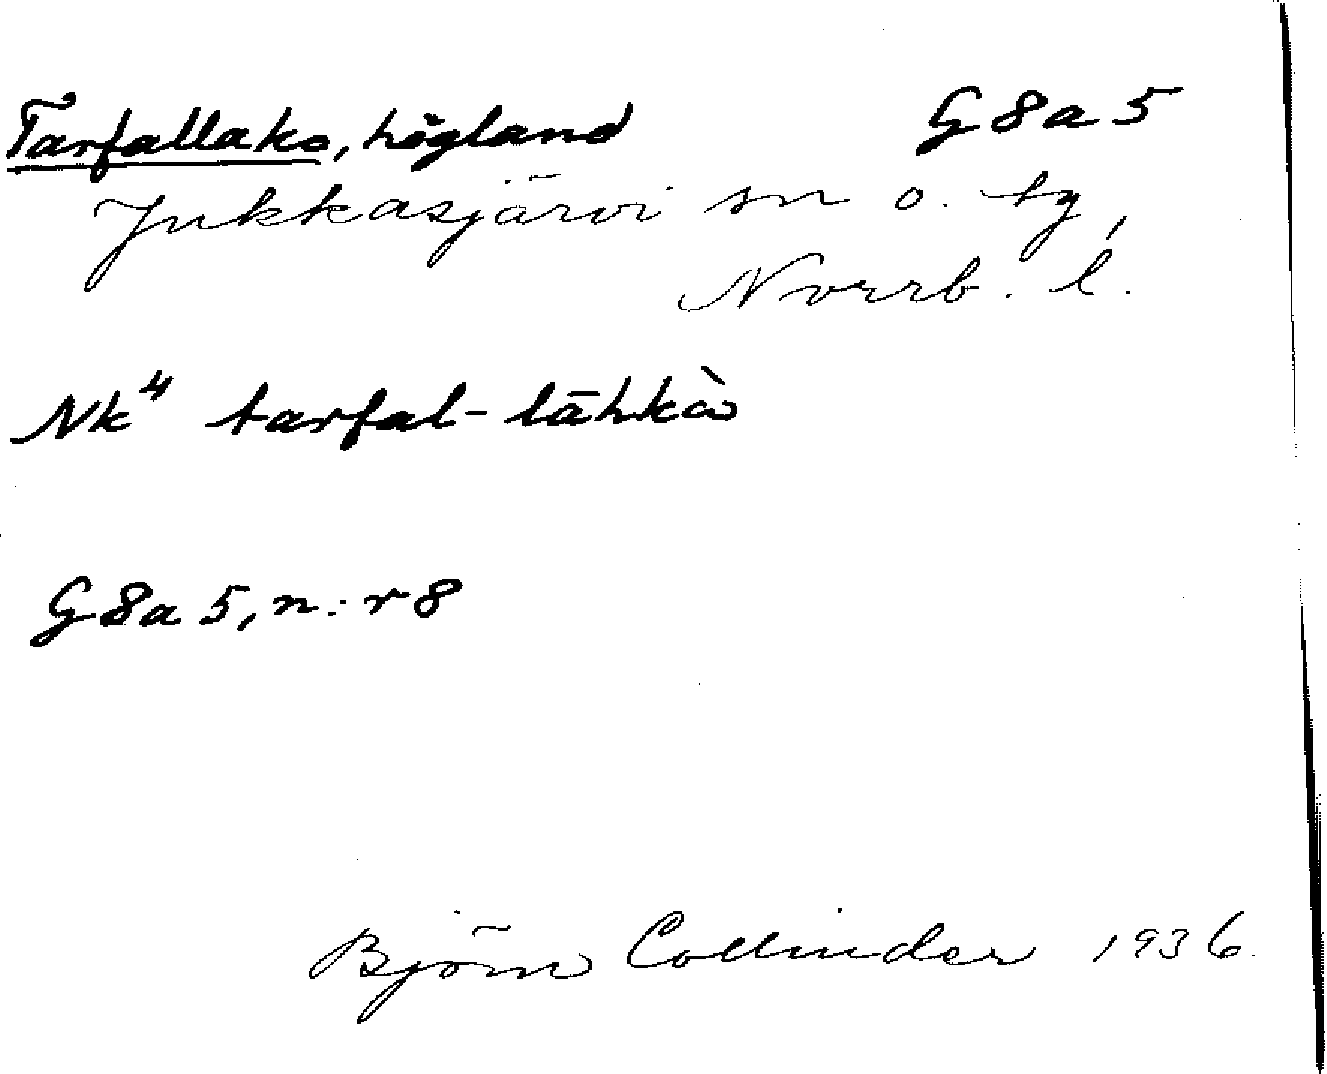 Tarfallako, högland G8a5
Jukkasjärvi sn o. tg,
Norrb. l.
Nk⁴ tarfal-lāhkò
G8a5, n:r 8
Björn Collinder 1936.